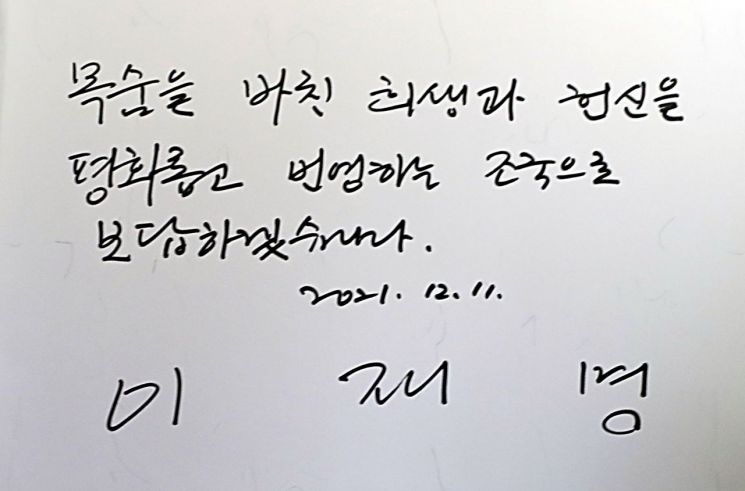 목숨을 바친 희생과 헌신을
평화롭고 번영하는 조국으로
보답하겠습니다.
2021. 12. 11.
이 재 명